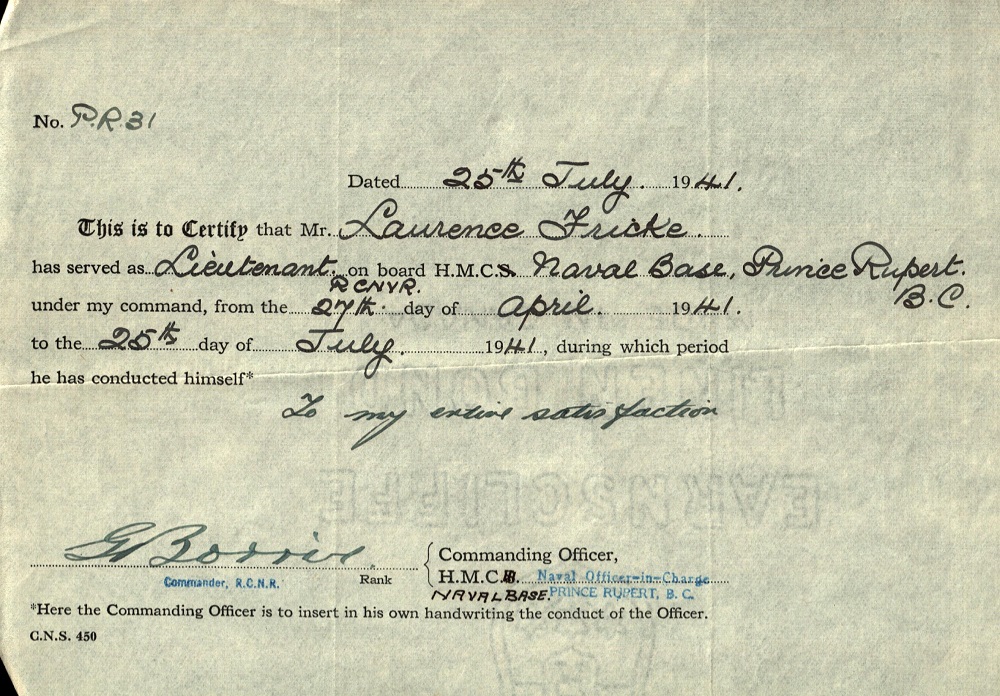 No. P.R. 31
Dated 25th July. 1941.
This is to Certify that Mr. Laurence Fricke
has served as Lieutenant. on board H.M.C.S. Naval Base, Prince Rupert.
RCNVR. B.C.
under my command, from the 27th. day of April. 1941.
to the 25th day of July. 1941, during which period
he has conducted himself*
To my entire satisfaction
EARNSCLIFFE
Commanding Officer,
Commander, R.C.N.R. Rank H.M.C. Naval Officer-in-Charge
NAVAL BASE. PRINCE RUPERT, B. C.
*Here the Commanding Officer is to insert in his own handwriting the conduct of the Officer.
C.N.S. 450